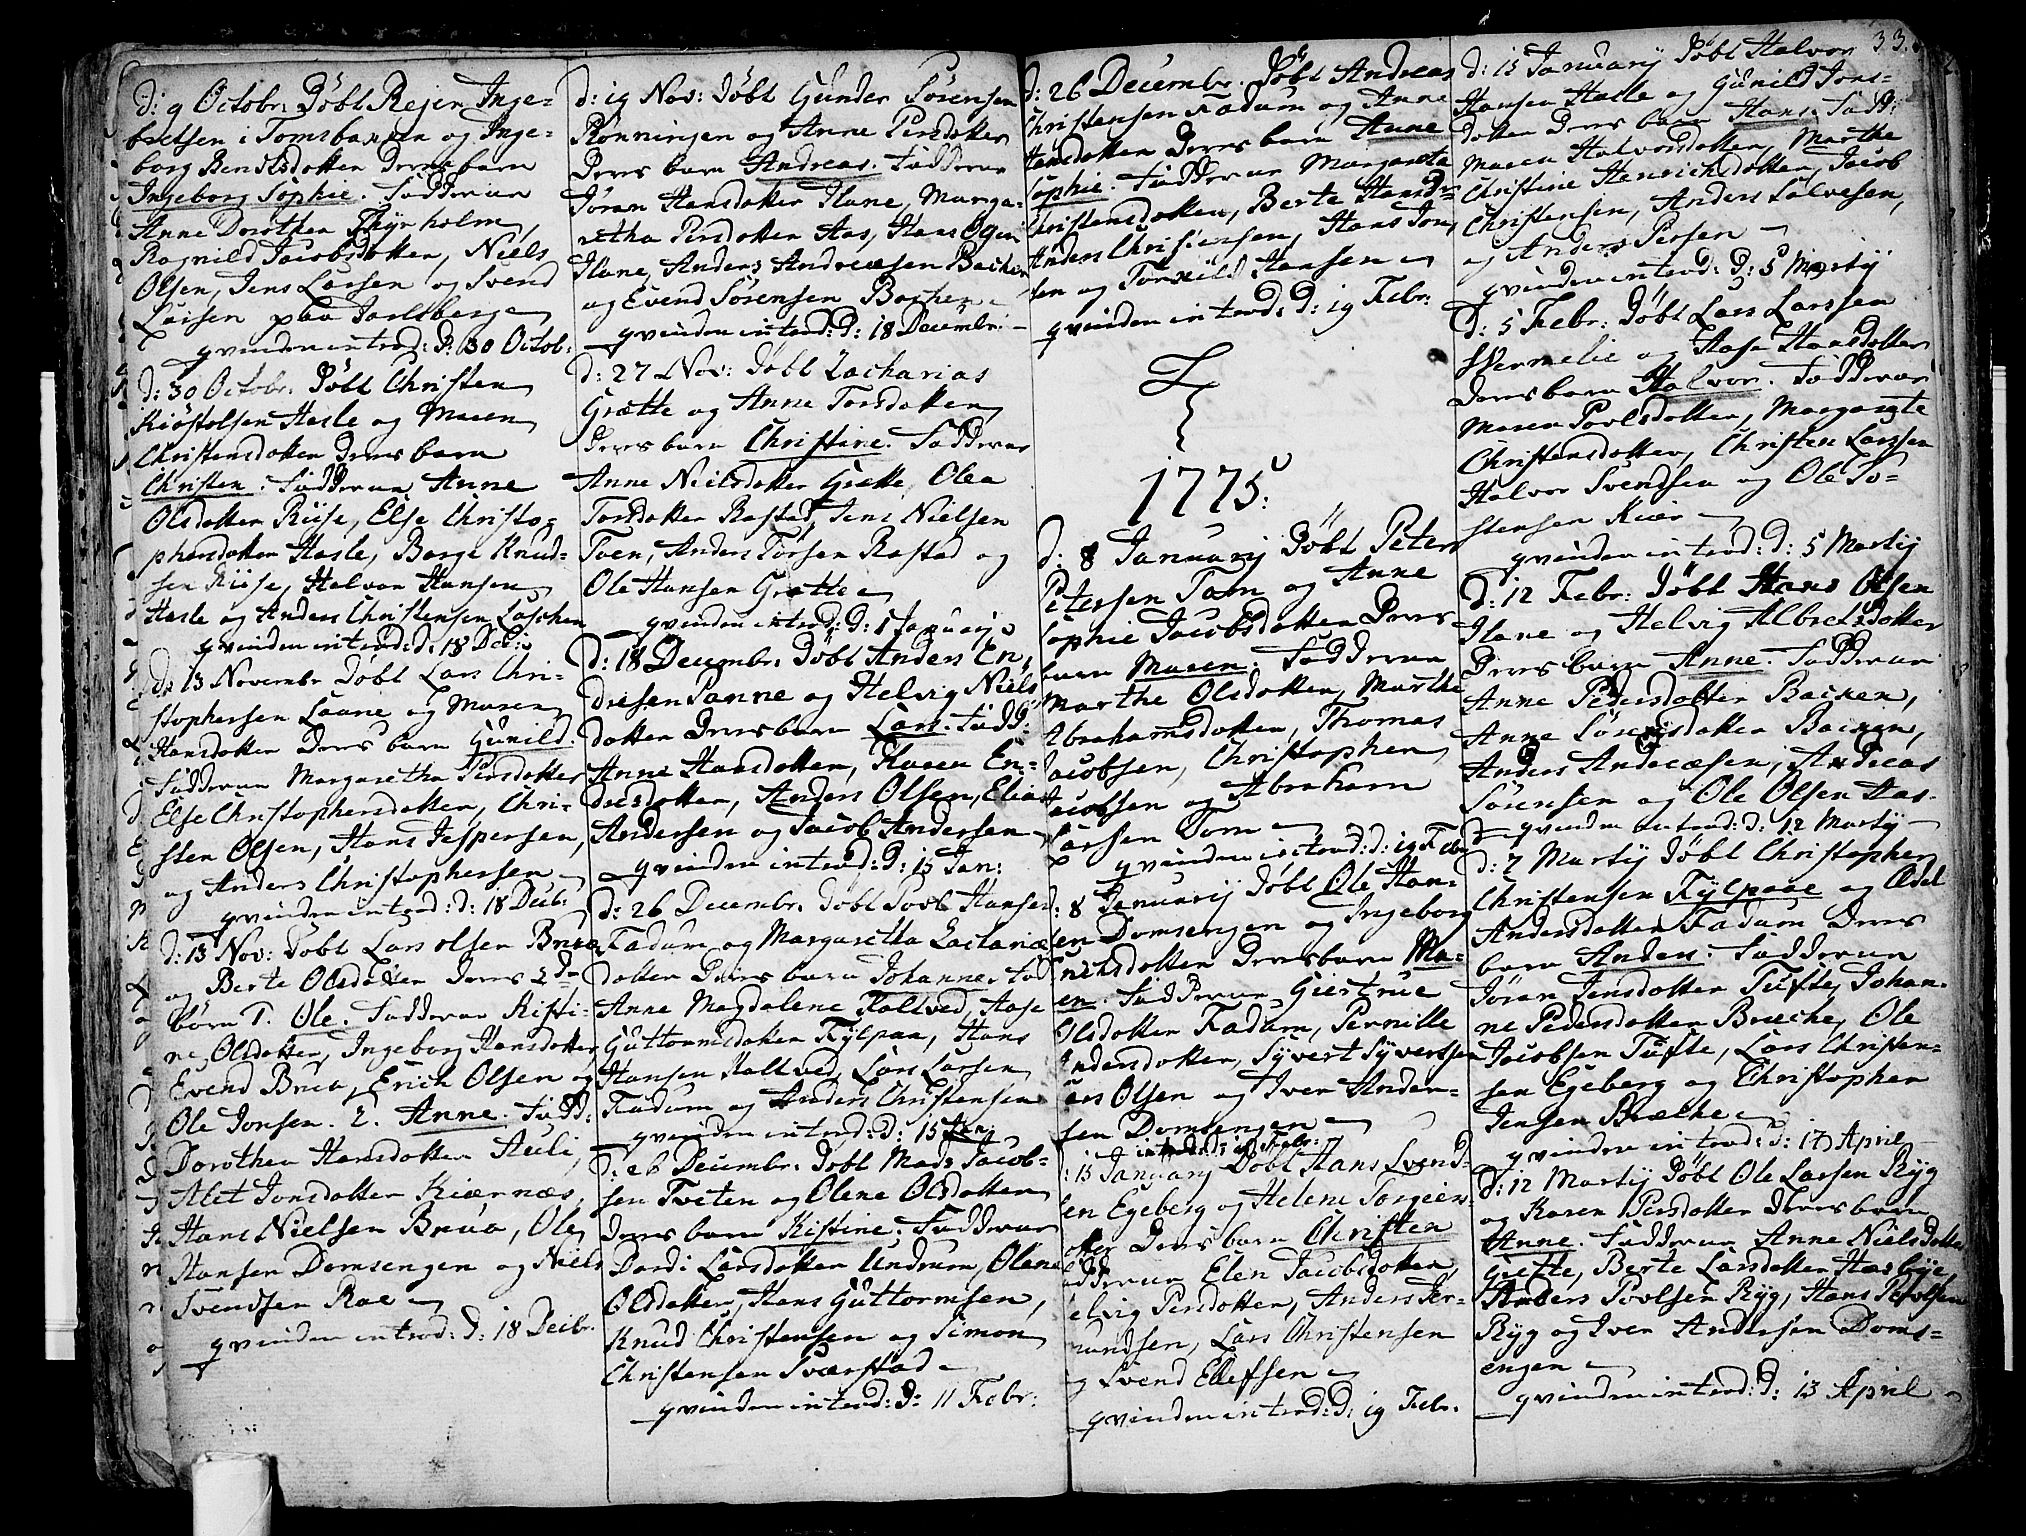 d: 9 Octobr: Döbt Rejer Inge-
bretsen i Tomsbakken og Inge-
borg Bendtsdotter Deres barn
Ingeborg Sophie. Fadderne
Anne Dorothea Thyrholm,
Ragnild Jacobsdotter, Niels
Olsen, Jens Larsen og Svend
Larsen paa Jarlsberg
qvinden introd: d: 30 Octob:
d: 30 Octobr: Döbt Christen
Kiöstolsen Hasle og Maren
Christensdotter Deres barn
Christen. Fadderne Anne
Olsdotter Riise, Else Christo-
phersdotter Hasle, Borge Knud-
sen Riise, Halvor Hansen
Hasle og Anders Christensen
qvinden introd: d: 18 Deci:
d: 13 Novembr Döbt Lars Chri-
stophersen Laane og Maren
Hansdotter Deres barn Gunild.
Fadderne Margaretha Persdotter
Else Christophersdotter, Chri-
sten Olsen, Hans Jespersen,
og Anders Christophersen
qvinden introd: d: 18 Decb:
d: 13 Nov: Döbt Lars Olsen Brua
og Berte Olsdotter Deres 2de
börn 1. Ole. Fadderne Kisti-
ne Olsdotter, Ingeborg Hansdotter
Evend Brua, Erich Olsen og
Ole Jonsen. 2. Anne. Fadd:
Dorothea Hansdotter Auli,
Alet Jonsdotter Kiærnæs,
Hans Nielsen Brua, Ole
Hansen Domsengen og Niels
Svendsen Rae
qvinden introd: d: 18 Decbr.
d: 19 Nov: Döbt Gunder Sörensen
Rönningen og Anne Persdotter
Deres barn Andreas. Fadderne
Jöran Hansdotter Ilane, Marga-
retha Persdotter Aas, Hans
Ilane, Anders Andreasen Backen
og Evend Sörensen Backen
qvinden introd: d: 18 Decembr:
d: 27 Nov: Döbt Zacharias
Grætte og Anne Torsdotter
Deres barn Christine. Fadderne
Anne Nielsdotter Grætte, Olea
Torsdotter Rastad, Jens Nielsen
Tven, Anders Torsen Rastad og
Ole Hansen Grætte
qvinden introd: d: 1 Januarij
d: 18 Decembr: Döbt Anders En-
dresen Sanne og Helvig Niels
dotter Deres barn Lars. Fadd:
Anne Hansdotter, Karen En-
dresdotter, Anders Olsen, Elias
Andersen og Jacob Andersen
qvinden introd: d: 15 Jan:
d: 26 Decembr: Döbt Povel Hansen
Fadum og Margaretha Zacharias
dotter Deres barn Johanne. Fad
Anne Magdalene Kaltved, Aase
Guttormsdotter Fylpaa, Hans
Hansen Kaltved, Lars Larsen
Fadum og Anders Christensen
qvinden introd: d: 15 Jan:
d: 26 Decembr: Döbt Mads Jacob-
sen Tveten og Olene Olsdotter
deres barn Kistine. Fadderne
Dordi Larsdotter Undrum, Olene
Olsdotter, Hans Guttormsen,
Knud Christensen og Simon
Christensen Sværstad
qvinden introd: d: 11 Febr:
d: 26 Decembr: Döbt Andreas
Christensen Fadum og Anne
Hansdotter Deres barn Anne
Sophie. Fadderne Margareta
Christensdotter, Berte Hansd:
Anders Christensen, Hans Jon-
sen og Torkild Hansen
qvinden introd: d: 19 Febr:
1775.
d: 8 Januarij Döbt Peter
Petersen Tom og Anne
Sophie Jacobsdotter Deres
barn Maren. Fadderne
Marthe Olsdotter, Marthe
Abrahamsdotter, Thomas
Jacobsen, Christopher
Jacobsen og Abraham
Larsen Tom
qvinden introd: d: 19 Febr
d: 8 Januarij Döbt Ole Han-
sen Domsengen og Ingeborg
Erichsdotter Deres barn Ma-
ren. Fadderne Giertrue
Olsdotter Fadum, Pernille
Andersdotter, Syvert Syvertsen
Lars Olsen og Iver Ander-
sen Domsengen
introd: d: 19 Febr:
d: 15 Januarij Döbt Hans Svend-
sen Egeberg og Helene Torgers
dotter Deres barn Christen
Fadderne Elen Jacobsdotter,
Helvig Persdotter, Anders Ter-
mundsen, Lars Christensen
og Svend Ellefsen
qvinden introd: d: 19 Febr.
33.
d: 15 Januarij Döbt Halvor
Hansen Hasle og Gunild Jons-
dotter Deres barn Hans. Fadd:
Maren Halvorsdotter, Marthe
Christine Henrichsdotter, Jacob
Christensen, Anders Salvesen,
og Anders Persen
qvinden introd: d: 5 Martij
d: 5 Febr: Döbt Lars Larssen
Skermelie og Aase Hansdotter
Deres barn Halvor. Fadderne
Maren Povlsdotter, Margarete
Christensdotter, Christen Larssen
Halvor Svendsen og Ole To-
stensen Kiær
qvinden introd: d: 5 Martij
d: 12 Febr: Döbt Hans Olsen
Ilane og Helvig Albretsdotter
Deres barn Anne. Fadderne
Anne Pedersdotter Backen,
Anne Sörensdotter Backen,
Anders Andreæsen, Andreas
Sörensen og Ole Olsen Aas
qvinden introd: d: 12 Martij
d: 7 Martij Döbt Christopher
Christensen Fylpaae og Edel
Andersdotter Fadum Deres
barn Anders. Fadderne
Jöran Jensdotter Tufte, Johan-
ne Pedersdotter Bræche, Ole
Jacobsen Tufte, Lars Christen-
sen Egeberg og Christopher
Jensen Bræche
qvinden introd: d: 17 April
d: 12 Martij Döbt Ole Larsen Ryg
og Karen Persdotter Deres barn
Anne. Fadderne Anne Nielsdotter
Grette, Berte Larsdotter Haslye,
Anders Povlsen Ryg, Hans Povlsen
Ryg og Iver Andersen Doms-
engen
qvinden introd: d: 13 April